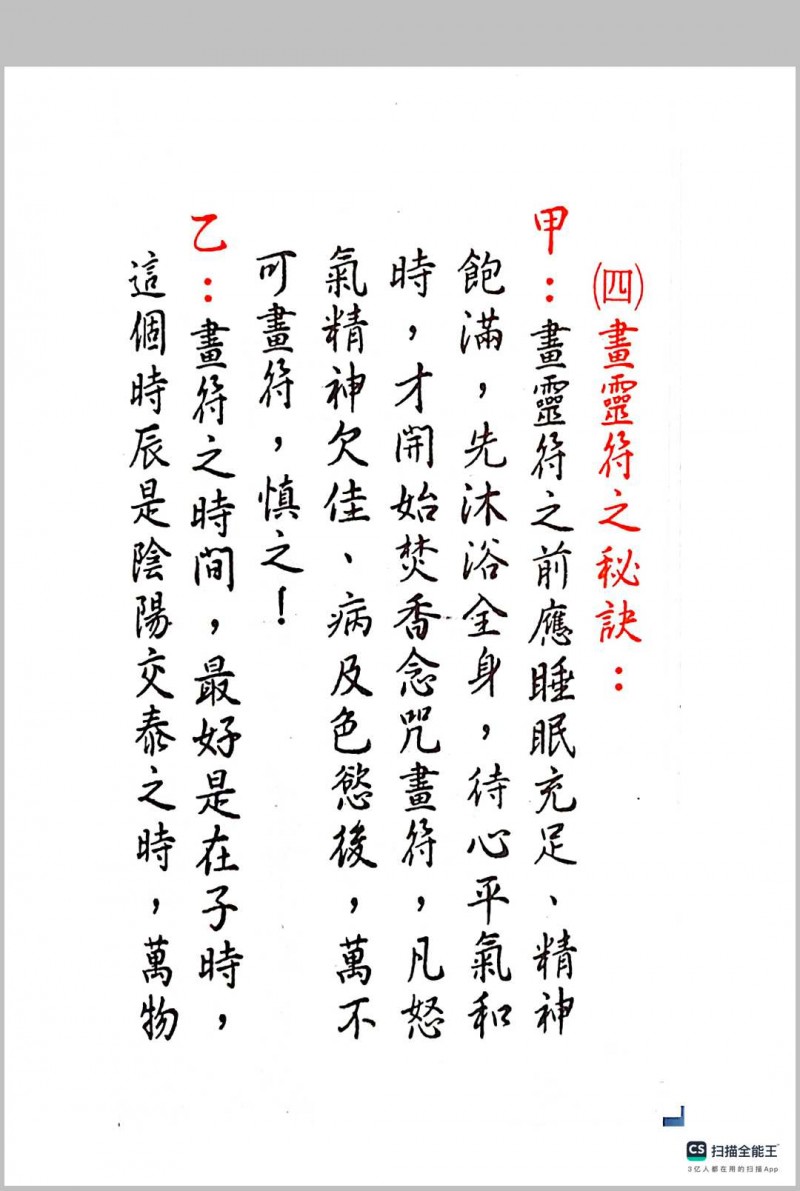 ㈣畫靈符之秘訣：
甲：畫靈符之前應睡眠充足、精神
飽滿，先沐浴全身，待心平氣和
時，才開始焚香念咒畫符，凡怒
氣精神欠佳、病及色慾後，萬不
可畫符，慎之！
乙：畫符之時間，最好是在子時，
這個時辰是陰陽交泰之時，萬物
CS 扫描全能王
3亿人都在用的扫描App